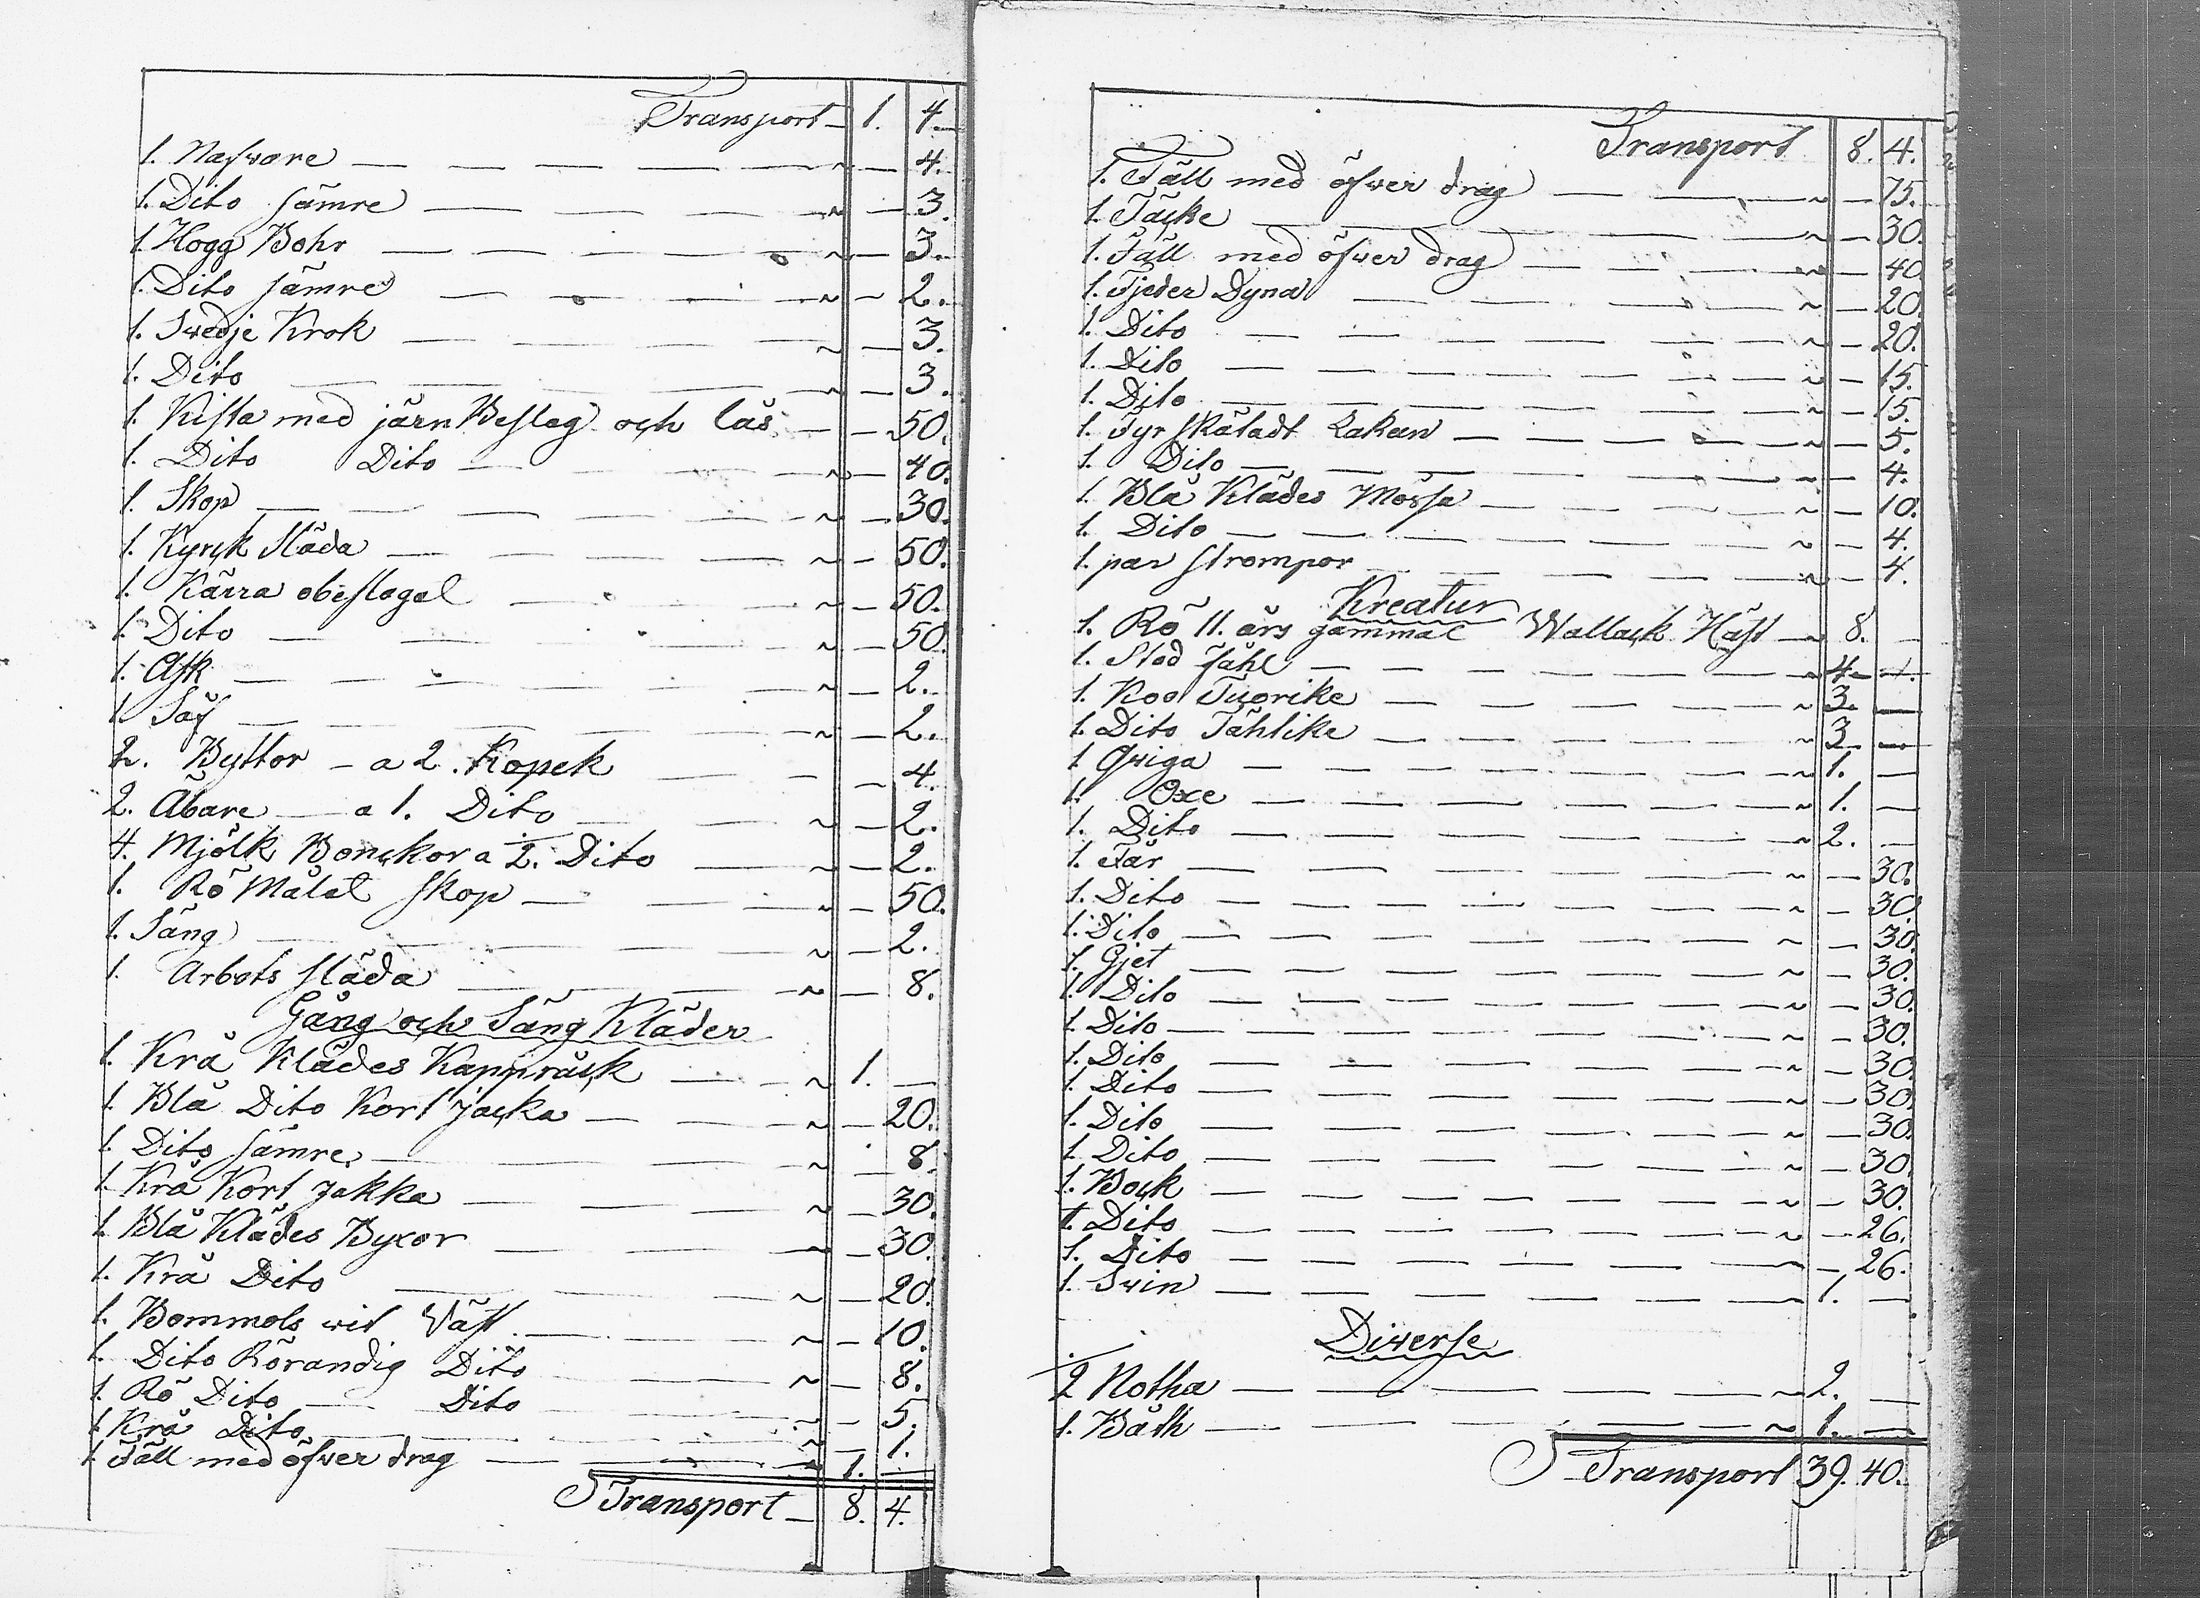 Transport 1. 4.
1. Nafware 4.
1. Dito sämre 3.
1. Hogg Bohr 3.
1. Dito sämre 2.
1. Swedje Krok 3.
1. Dito 3.
1. Kista med järn Beslag och lås 50.
1. Dito Dito 40.
1. Skop 30.
1. Kyrck släda 50.
1. Kärra obeslagal 50.
1. Dito 50.
1. Ask 2.
1. Såf 2.
2. Byttor a 2. Kopek 4.
2. Åbare a 1. Dito 2.
4. Mjölk Bonckor a 1/2. Dito 2.
1. Rö Målat skop 50.
1. Säng 2.
1. Arbets släda 8.
Gång och Säng Kläder
1. Krå Klädes Kappråck 1.
1. Blå Dito Kort Jacka 20.
1. Dito sämre 8.
1. Krå Kort Jakka 30.
1. Blå Klädes Byxor 30.
1. Krå Dito 20.
1. Bommols wit Väst 10.
1. Dito Rörandig Dito 8.
1. Rö Dito Dito 5.
1. Krå Dito 1.
1. Fäll med öfwer drag 1.
Transport 8. 4.
Transport 8. 4.
1. Fäll med öfwer drag 75.
1. Täcke 30.
1. Fäll med öfwer drag 40.
1. Fjeder Dyna 20.
1. Dito 20.
1. Dito 15.
1. Dito 15.
1. Fyr skäladt Lakan 5.
1. Dito 4.
1. Blå Klädes Mössa 10.
1. Dito 4.
1. par strompor 4.
Kreatur
1. Rö 11. års gammal Wallack Häst 8.
1. Stod fåhl 4.
1. Koo Tuorike 3.
1. Dito Tähtike 3
1. Qwiga 1.
1. Oxe 1.
1. Dito 2.
1. Får 30.
1. Dito 30.
1. Dito 30.
1. Gjet 30.
1. Dito 30.
1. Dito 30.
1. Dito 30.
1. Dito 30.
1. Dito 30.
1. Dito 30.
1. Bock 30.
1. Dito 26.
1. Dito 26.
1. Swin 1.
Diwerse
1/2 Notha 2.
1. Båth 1.
Transport 39. 40.